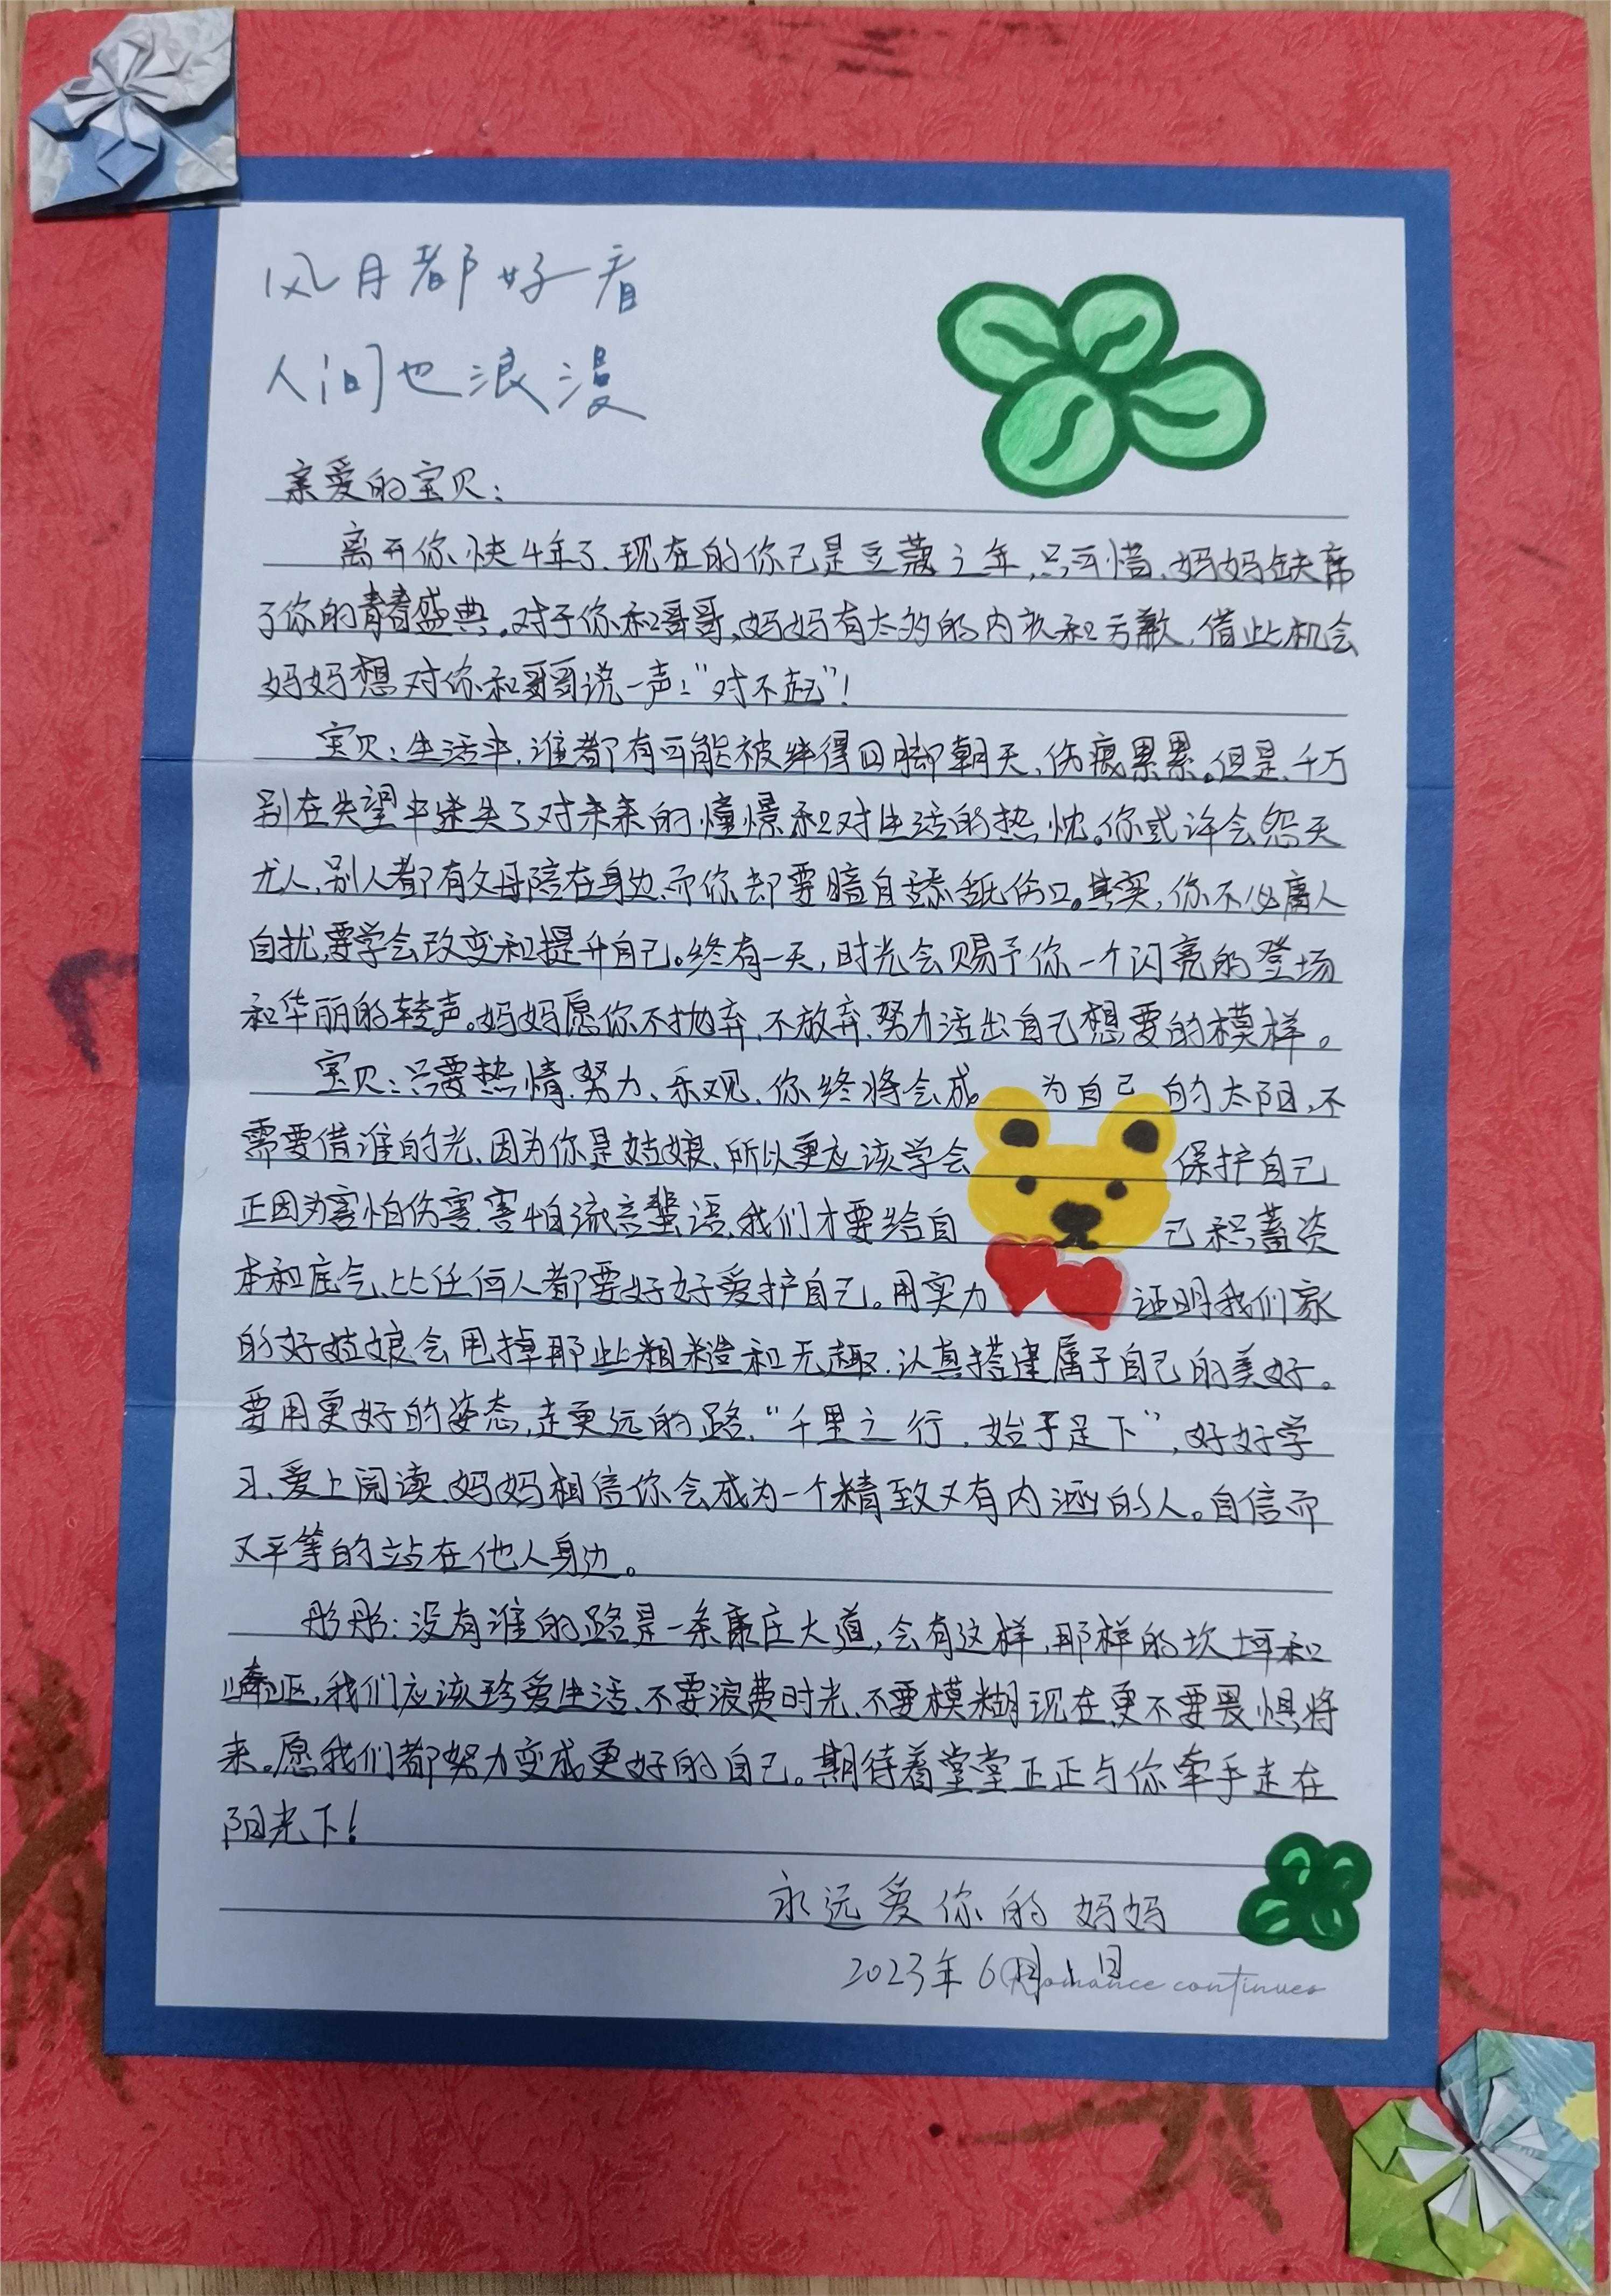 风月都好看
人间也浪漫
亲爱的宝贝：
离开你快4年了、现在的你已是豆蔻之年，只可惜、妈妈缺席
了你的青春盛典。对于你和哥哥，妈妈有太多的内疚和亏歉，借此机会
妈妈想对你和哥哥说一声："对不起"！
宝贝：生活中，谁都有可能被绊得四脚朝天、伤痕累累。但是、千万
别在失望中迷失了对未来的憧憬和对生活的热忱。你或许会怨天
尤人，别人都有父母陪在身边、而你却要暗自舔舐伤口。其实，你不必庸人
自扰，要学会改变和提升自己。终有一天，时光会赐予你一个闪亮的登场
和华丽的转声。妈妈愿你不抛弃、不放弃、努力活出自己想要的模样。
宝贝：只要热情、努力、乐观、你终将会成为自己的太阳，不
需要借谁的光、因为你是姑娘、所以更应该学会保护自己
正因为害怕伤害、害怕流言蜚语，我们才要给自己积蓄资
本和底气、比任何人都要好好爱护自己。用实力证明我们家
的好姑娘会甩掉那些粗糙和无趣、认真搭建属于自己的美好。
要用更好的姿态，走更远的路、"千里之行，始于足下"，好好学
习、爱上阅读、妈妈相信你会成为一个精致又有内涵的人。自信而
又平等的站在他人身边。
彤彤：没有谁的路是一条康庄大道，会有这样，那样的坎坷和
崎岖，我们应该珍爱生活、不要浪费时光、不要模糊现在、更不要畏惧将
来。愿我们都努力变成更好的自己。期待着堂堂正正与你牵手走在
阳光下！
永远爱你的妈妈
2023年6月1日
Romance continues